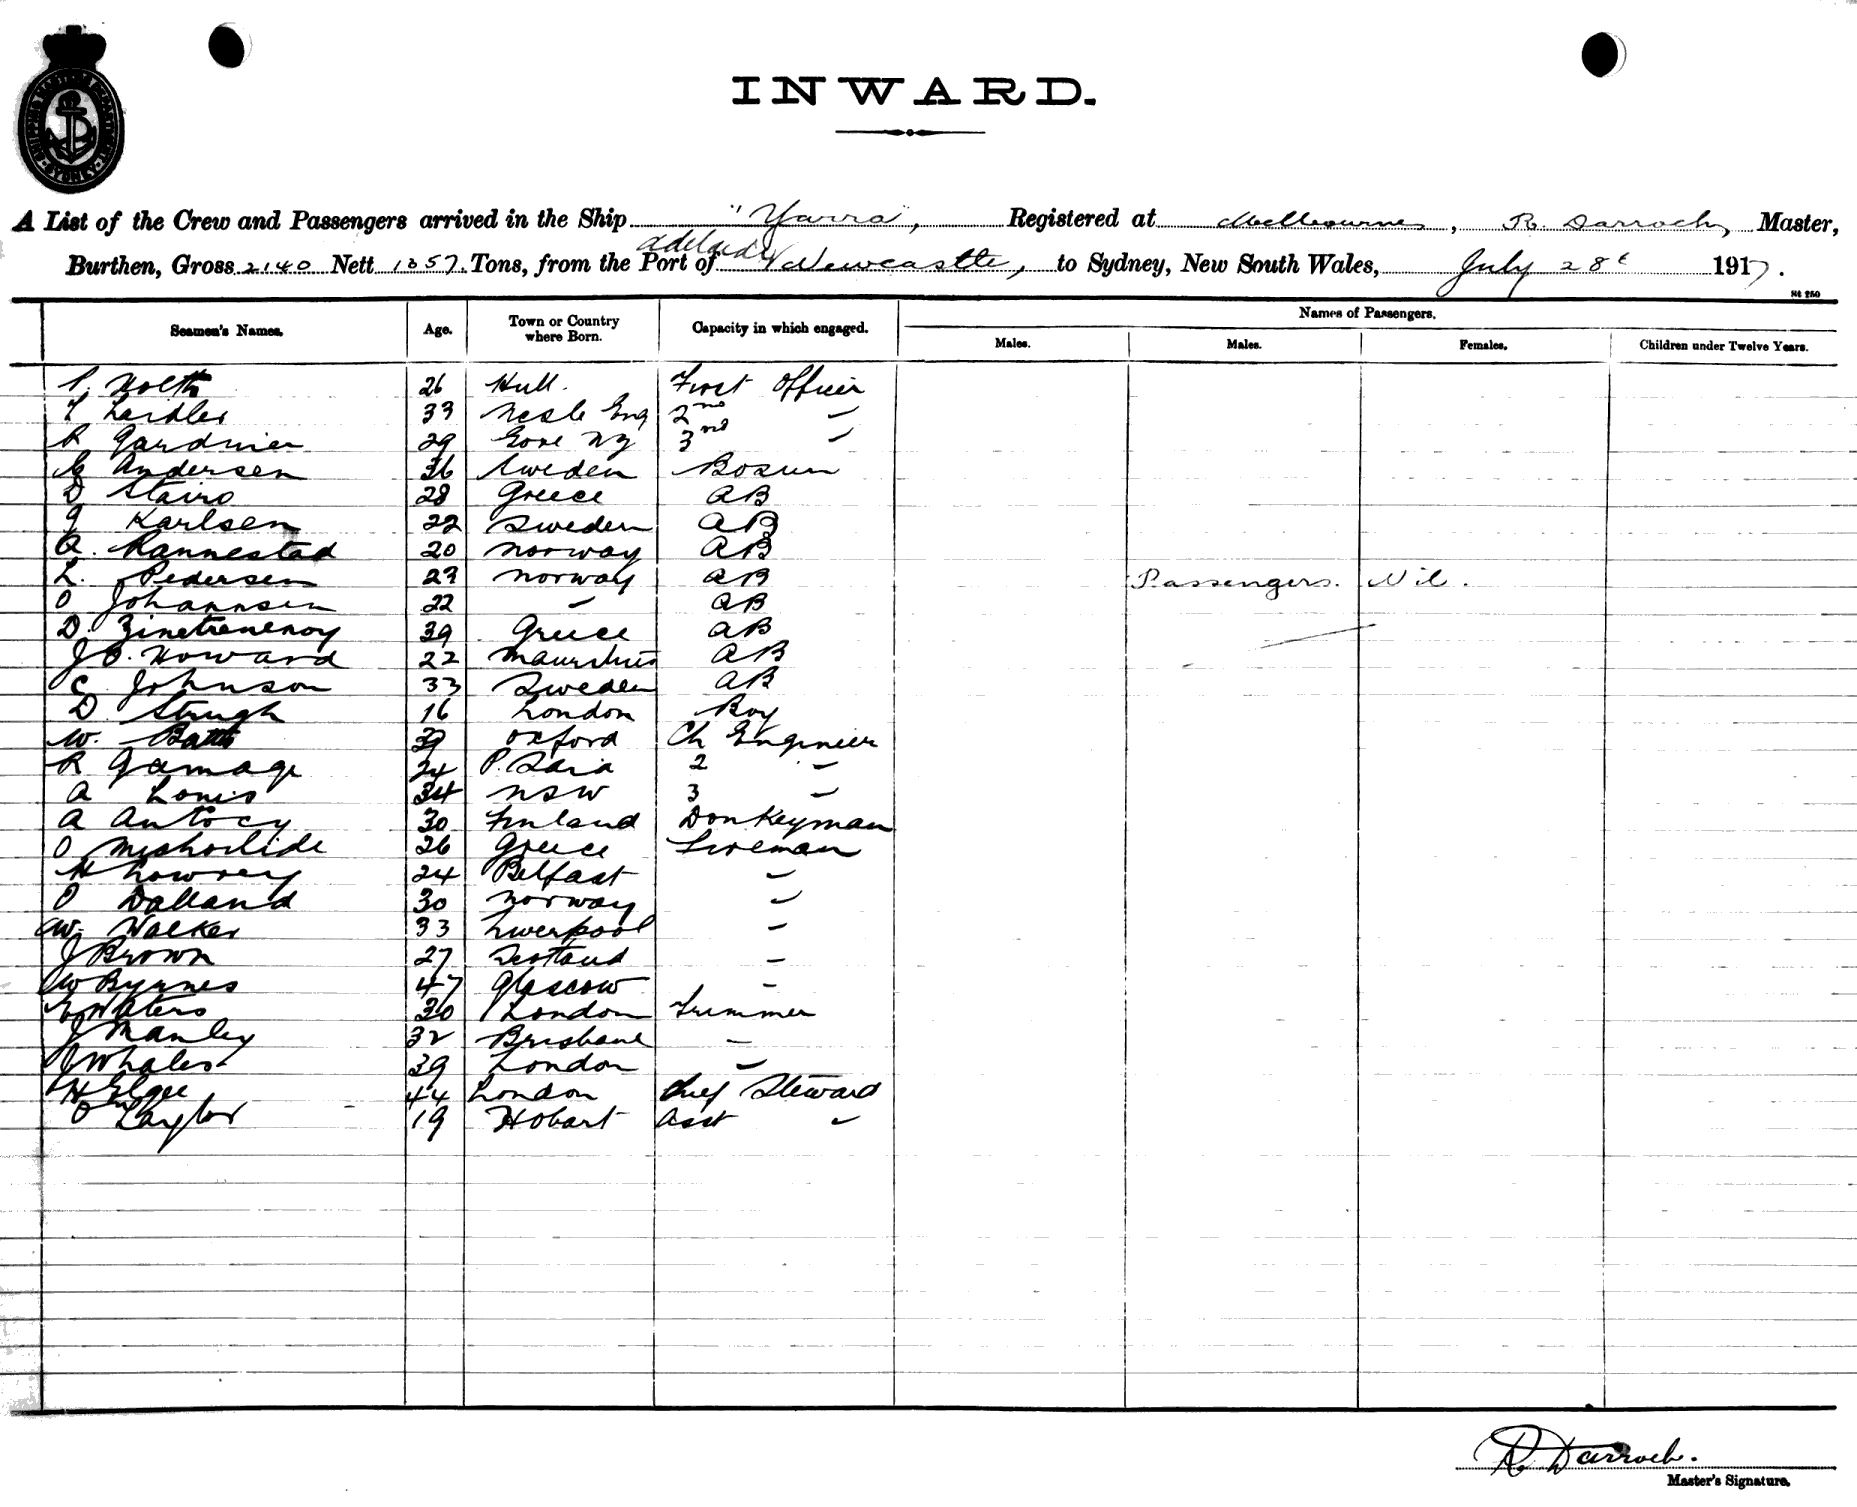 SHIPPING MASTER'S DEPARTMENT SYDNEY
INWARD.
A List of the Crew and Passengers arrived in the Ship "Yarra", Registered at Melbourne, R. Darroch, Master,
Burthen, Gross 2140 Nett 1357 Tons, from the Port of Adelaide & Newcastle, to Sydney, New South Wales, July 28t 1917.
St 250
Seamen's Names. Age. Town or Country where Born. Capacity in which engaged. Names of Passengers.
Males. Males. Females. Children under Twelve Years.
26 Hull. First Officer
33 Eng 2nd "
R Gardiner 29 Gore NZ 3rd "
Andersen 36 Sweden Bosun
D Stairo 28 Greece AB
G Karlsen 22 Sweden AB
A. Rannestad 20 Norway AB
L. Pedersen 23 Norway AB Passengers. Nil.
O Johannsen 22 " AB
D. 39 Greece AB
J O. Howard 22 Mauritius AB
C Johnson 33 Sweden AB
D 16 London Boy
W. Batts 39 Oxford Ch Engineer
R Gamage 24 P. 2 "
A Louis 34 NSW 3 "
A Antocy 30 Finland Donkeyman
O 26 Greece Fireman
H Lowrey 24 Belfast "
O Dalland 30 Norway "
W. Walker 33 Liverpool "
J Brown 27 Scotland "
W Byrnes 47 Glascow "
Waters 30 London Trimmer
J Manley 32 Brisbane "
J Whales 39 London "
H Elgee 44 London Chief Steward
O Taylor 19 Hobart Asst "
R Darroch.
Master's Signature.